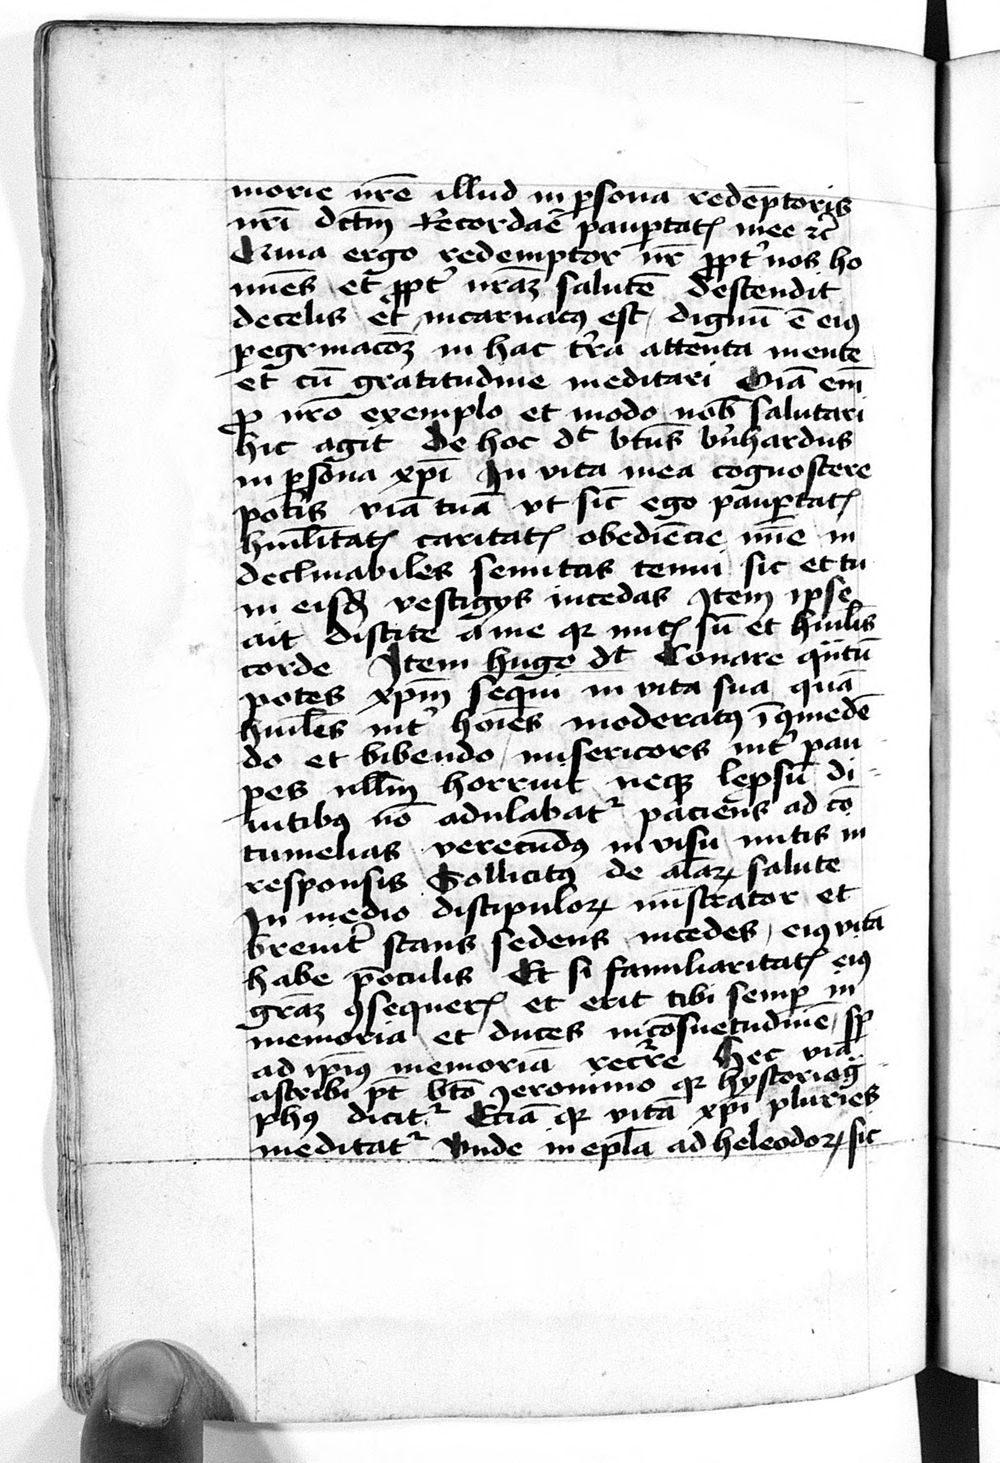 morie nr̄e illud in ꝑsona redēptoris
nr̄i dc̄tm̄ Recordaē pauꝑtatꝭ mee ⁊c̄
Quia ergo redemptor nr̄ ꝓpt' nos ho
mīes et ꝓpt' nr̄aꝫ salutē descendit
decelis et incarnatꝰ est dignū ē eiꝰ
ꝑegrinacōꝫ in hac t'ra attenta mente
et cū gratitudine meditari Oīa em̄
ꝓ nr̄o exemplo et modo nob̄ salutari
hic agit De hoc dt̄ btūs b'nhardus
in ꝑsona xp̄i In vita mea cognoscere
potīs viā tuā vt sic̄ ego pauꝑtatꝭ
hūilitatꝭ caritatꝭ obediēcie mīe in
declinabiles semitas tenui sic et tu
in eisd̄ vestigijs incedas Item ip̄se
ait discite a me qꝛ mitꝭ sū et hūil̄is
corde Item hugo dt̄ Conare qn̄tū
potes xp̄m̄ sequi in vita sua quā
hūil̄es int' hoīes moderatꝰ ī ꝯmedē
do et bibendo misericors int' pau
ꝑes null̄m horruit neqꝫ lepsū di
uitibꝰ nō adulabat᷑ paciens ad cō
tumelias verecūdꝰ in visu mitis in
responsis Sollicitꝰ de alāꝝ salute
In medio discipuloꝝ mīstrator et
breuit' stans sedens incedes eiꝰ vitā
habe p̄oculis Et si familiaritatꝭ eiꝰ
gr̄aꝫ ꝯsequerꝭ et erit tibi semꝑ in
memoria et duces in cōsuetudinē sꝑ
ad ip̄iꝰ memoriā recr̄re Hec viā
ascribi pt̄ btō Jeronimo qꝛ hystoriog
phꝰ dicit᷑ Eciā qꝛ vitā xp̄i pluries
meditat᷑ Vnde in ep̄la ad heleodoꝝ sic